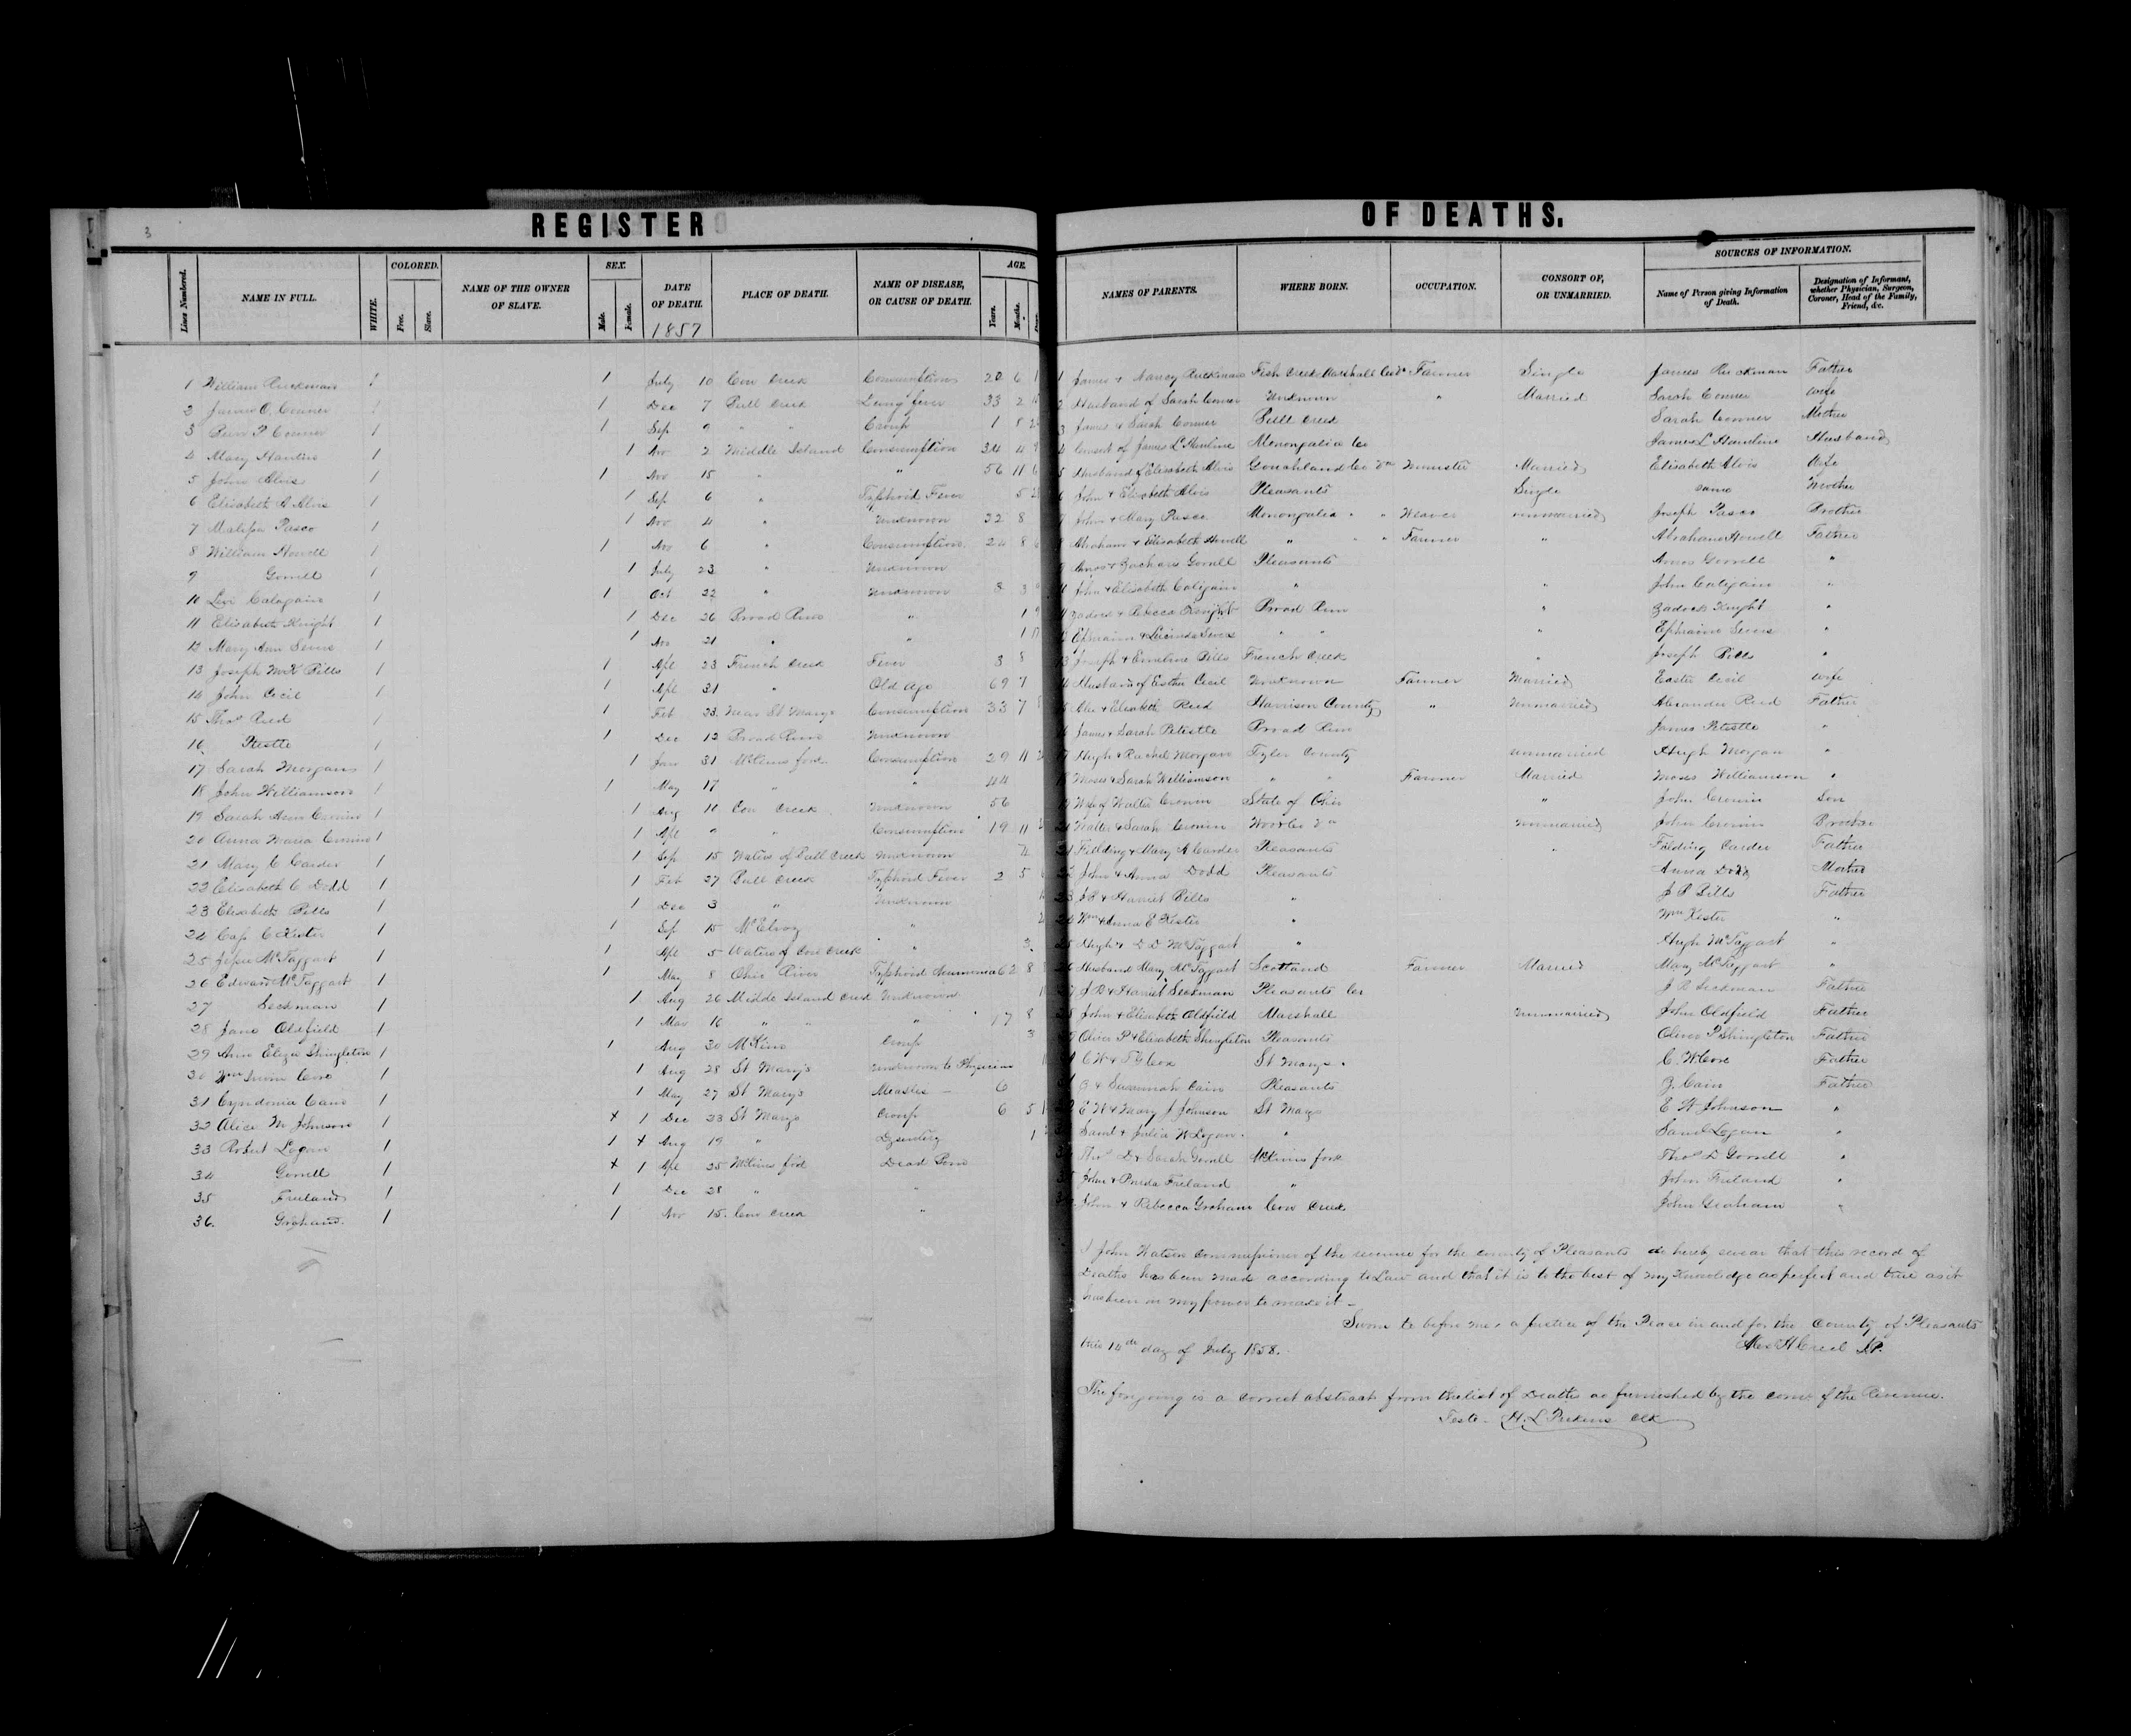 3
REGISTER OF DEATHS.
Lines Numbered. NAME IN FULL. WHITE. COLORED. Free. Slave. NAME OF THE OWNER OF SLAVE. SEX. Male. Female. DATE OF DEATH. 1857 PLACE OF DEATH. NAME OF DISEASE, OR CAUSE OF DEATH. AGE. Years. Months. NAMES OF PARENTS. WHERE BORN. OCCUPATION. CONSORT OF, OR UNMARRIED. SOURCES OF INFORMATION. Name of Person giving Information of Death. Designation of Informant, whether Physician, Surgeon, Coroner, Head of the Family, Friend, &c.
1 William Ruckman 1 1 July 10 Cow Creek Consumption 20 6 1 James & Nancy Ruckman Fish Creek Marshall Co Va Farmer Single James Ruckman Father
2 James O. Conner 1 1 Dec 7 Bull Creek Lung fever 33 2 2 Husband of Sarah Conner Unknown " Married Sarah Conner Wife
3 P Conner 1 1 Sep 9 " " Croup 1 8 3 James & Sarah Conner Bull Creek Sarah Conner Mother
4 Mary Hamline 1 1 Nov 2 Middle Island Consumption 34 4 9 4 Consort of James L Hamline Monongalia Co James L Hamline Husband
5 John Alvis 1 1 Nov 15 " " 56 11 6 5 Husband of Elisabeth Alvis Gouchland Co Va Minister Married Elisabeth Alvis Wife
6 Elisabeth A Alvis 1 1 Sep 6 " Typhoid Fever 5 6 John & Elisabeth Alvis Pleasants Single same Mother
7 Malissa Pasco 1 1 Nov 4 " Unknown 32 8 7 John & Mary Pasco Monongalia " " Weaver unmarried Joseph Pasco Brother
8 William Howell 1 1 Nov 6 " Consumption 24 8 6 Abraham & Elisabeth Howell " " " Farmer " Abraham Howell Father
9 Gorrell 1 1 July 23 " Unknown Amos & Gorrell Pleasants Amos Gorrell "
10 Levi Calagain 1 1 Oct 22 " Unknown 8 3 John & Elisabeth Caligain " " John Caligain "
11 Elisabeth Knight 1 1 Dec 26 Broad Run " 1 9 Zadock & Rebecca Knight Broad Run " Zadock Knight "
12 Mary Ann Sims 1 1 Nov 21 " " 1 17 Ephraim & Lucinda " " " Ephraim "
13 Joseph McK Bills 1 1 Apl 23 French Creek Fever 3 8 13 Joseph & Emeline Bills French Creek " Joseph Bills "
14 John Cecil 1 1 Apl 21 " Old Age 69 7 Husband of Esther Cecil Unknown Farmer Married Easter Cecil Wife
15 Thos Reed 1 1 Feb 23 Near St Marys Consumption 33 7 Alx & Elisabeth Reed Harrison County " Unmarried Alexander Reed Father
16 1 1 Dec 12 Broad Run Unknown James & Sarah Petestle Broad Run James Petestle "
17 Sarah Morgan 1 1 Jan 31 McKims fork Consumption 29 11 Hugh & Rachel Morgan Tyler County unmarried Hugh Morgan "
18 John Williamson 1 1 May 17 " " 44 18 Moses & Sarah Williamson " " Farmer Married Moses Williamson "
19 Sarah Ann Cronin 1 1 Aug 10 Cow Creek Unknown 56 Wife of Walter Cronin State of Ohio " John Cronin Son
20 Anna Maria Cronin 1 1 Apl 9 " Consumption 19 11 Walter & Sarah Cronin Wood Co Va unmarried John Cronin Brother
21 Mary C Carder 1 1 Sep 15 Waters of Bull Creek Unknown 21 Fielding & Mary A Carder Pleasants " Fielding Carder Father
22 Elisabeth C Dodd 1 1 Feb 27 Bull Creek Typhoid Fever 2 5 22 John & Anna Dodd Pleasants Anna Dodd Mother
23 Elisabeth Bills 1 1 Dec 3 " Unknown 23 J P & Harriet Bills " J P Bills Father
24 C Kester 1 1 Sep 15 McElroy " 24 Wm & Anna E Kester " Wm Kester "
25 Jesse McTaggart 1 1 Apl 5 Waters of Cow Creek " 3 25 Hugh & D D McTaggart " Hugh McTaggart "
26 Edward McTaggart 1 1 May 8 Ohio River Typhoid Pneumonia 62 8 26 Husband Mary McTaggart Scotland Farmer Married Mary McTaggart "
27 Seckman 1 1 Aug 26 Middle Island Creek Unknown J B & Harriet Seckman Pleasants Co J B Seckman Father
28 Jane Oldfield 1 1 Mar 16 " " " 17 8 28 John & Elisabeth Oldfield Marshall Unmarried John Oldfield Father
29 Ann Eliza Shingleton 1 1 Aug 30 McKims Croup 3 29 Oliver P & Elisabeth Shingleton Pleasants Oliver P Shingleton Father
30 Wm Cox 1 1 Aug 28 St Marys Unknown to Physician C W & Cox St Marys C. W. Cox Father
31 Cyndonia Cain 1 1 May 27 St Marys Measles 6 & Susannah Cain Pleasants Cain Father
32 Alice M Johnson 1 x 1 Dec 23 St Marys Croup 6 5 E W & Mary J Johnson St Marys E W Johnson "
33 Robert Logan 1 1 x Aug 19 " Dysentery 1 Saml & Julia W Logan " Saml Logan "
34 Gorrell 1 x 1 Apl 25 McKims fork Dead Born Thos D & Sarah Gorrell McKims fork Thos D Gorrell "
35 Freeland 1 1 Dec 28 " " John & Freland " John Freland "
36. Graham 1 1 Nov 15 Cow Creek " John & Rebecca Graham Cow Creek John Graham "
I John Watson Commissioner of the revenue for the county of Pleasants do hereby swear that this record of
Deaths has been made according to Law and that it is to the best of my knowledge as perfect and true as it
has been in my power to make it
Sworn to before me, a Justice of the Peace in and for the County of Pleasants
this 14th day of July 1858. Alex H Creel J.P.
The foregoing is a correct abstract from the list of Deaths as furnished by the Comr of the Revenue.
Teste H. L Pickens Clk